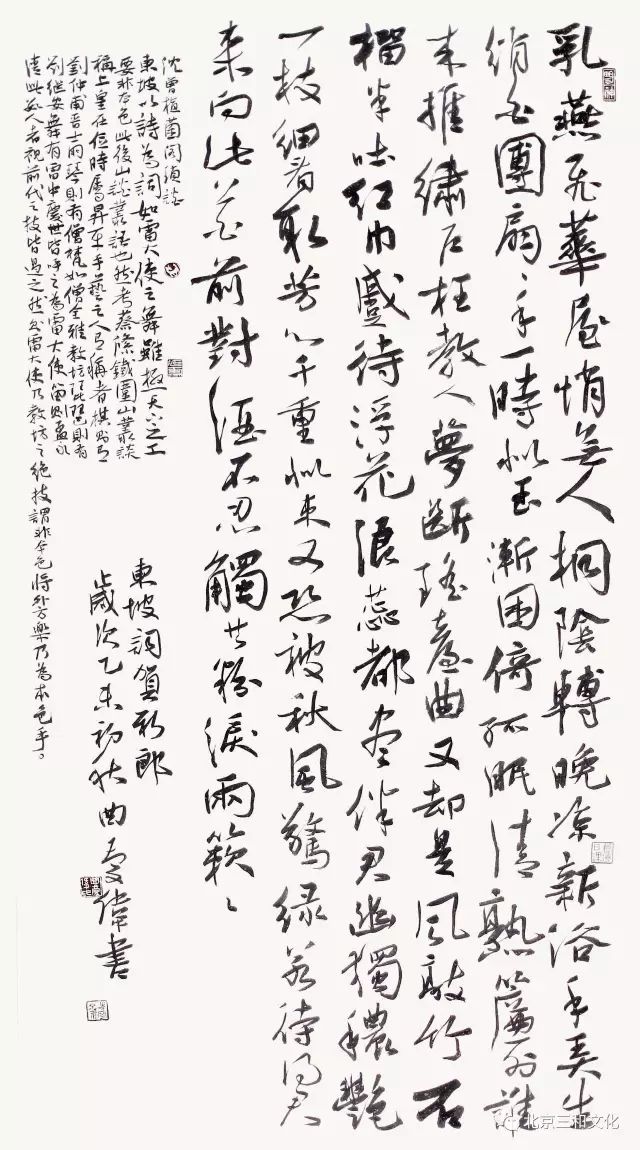 乳燕飛華屋悄無人桐陰轉晚涼新浴手弄生
綃白團扇〻手一時似玉漸困倚孤眠清熟簾外誰
來推繡戶枉教人夢斷瑤臺曲又却是風敲竹石
榴半吐紅巾蹙待浮花浪蕊都盡伴君幽獨穠艷
一枝細看取芳心千重似束又恐被秋風驚綠若待得君
來向此花前對酒不忍觸共粉淚兩簌〻
沈曾植菌閣瑣談
東坡以詩為詞如雷大使之舞雖極天下之工
要非本色此後山談叢語也然考蔡絛鐵圍山叢談
稱上皇在位時屬昇平手藝之人有稱者棋則有
劉仲甫晉士明琴則有僧梵如僧全雅教坊琵琶則有
劉繼安舞有雷中慶世皆呼之為雷大使笛則孟水
清此數人者視前代之技皆過之然則雷大使乃教坊之絕技謂非本色將外方樂乃為本色乎。
東坡詞賀新郎
歲次乙未初秋曲慶偉書
北京三和文化